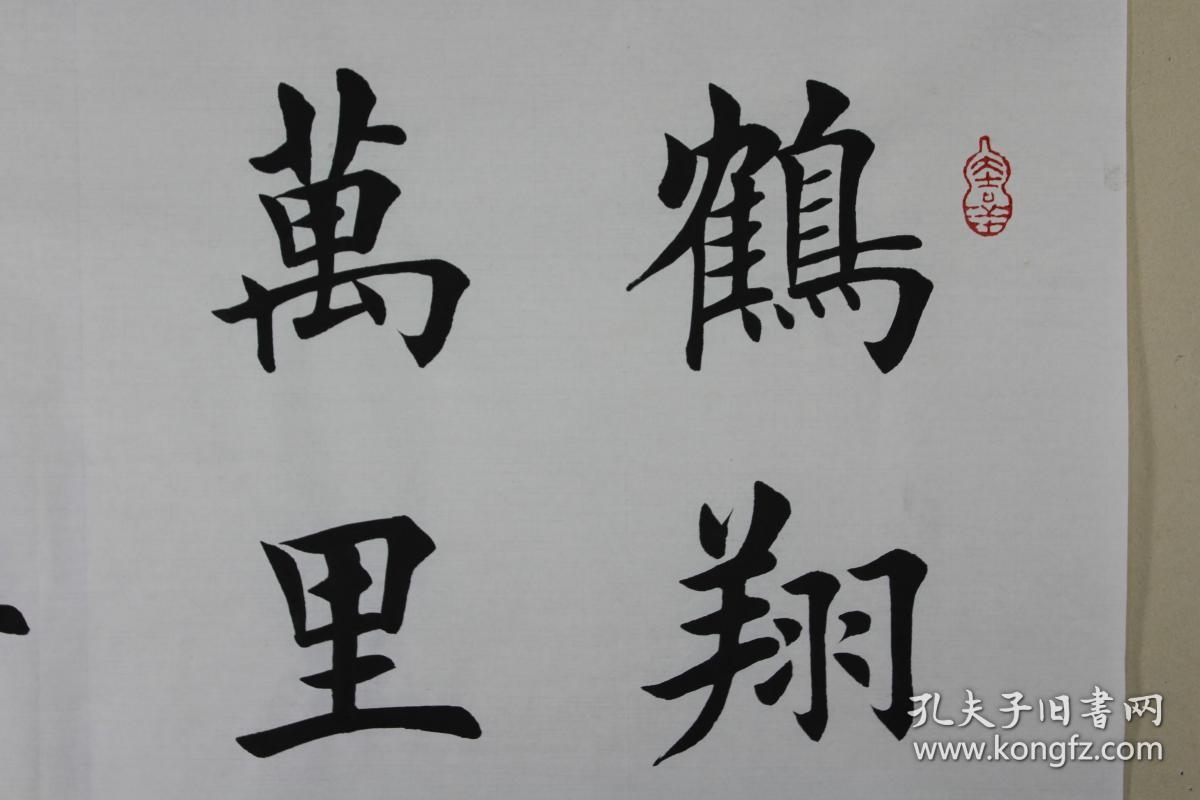 鶴翔
萬里
孔夫子旧書网
www.kongfz.com